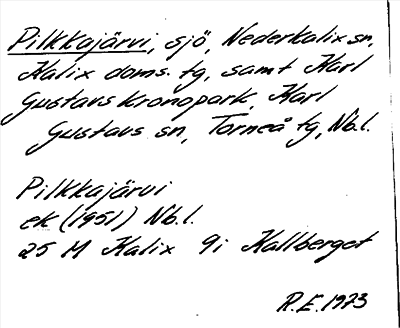 Pilkkajärvi, sjö, Nederkalix sn,
Kalix doms. tg, samt Karl
Gustavs kronopark, Karl
Gustavs sn, Torneå tg, Nb.l.
Pilkkajärvi
ek (1951) Nb.l.
25 M Kalix 9i Kallberget
R.E. 1973